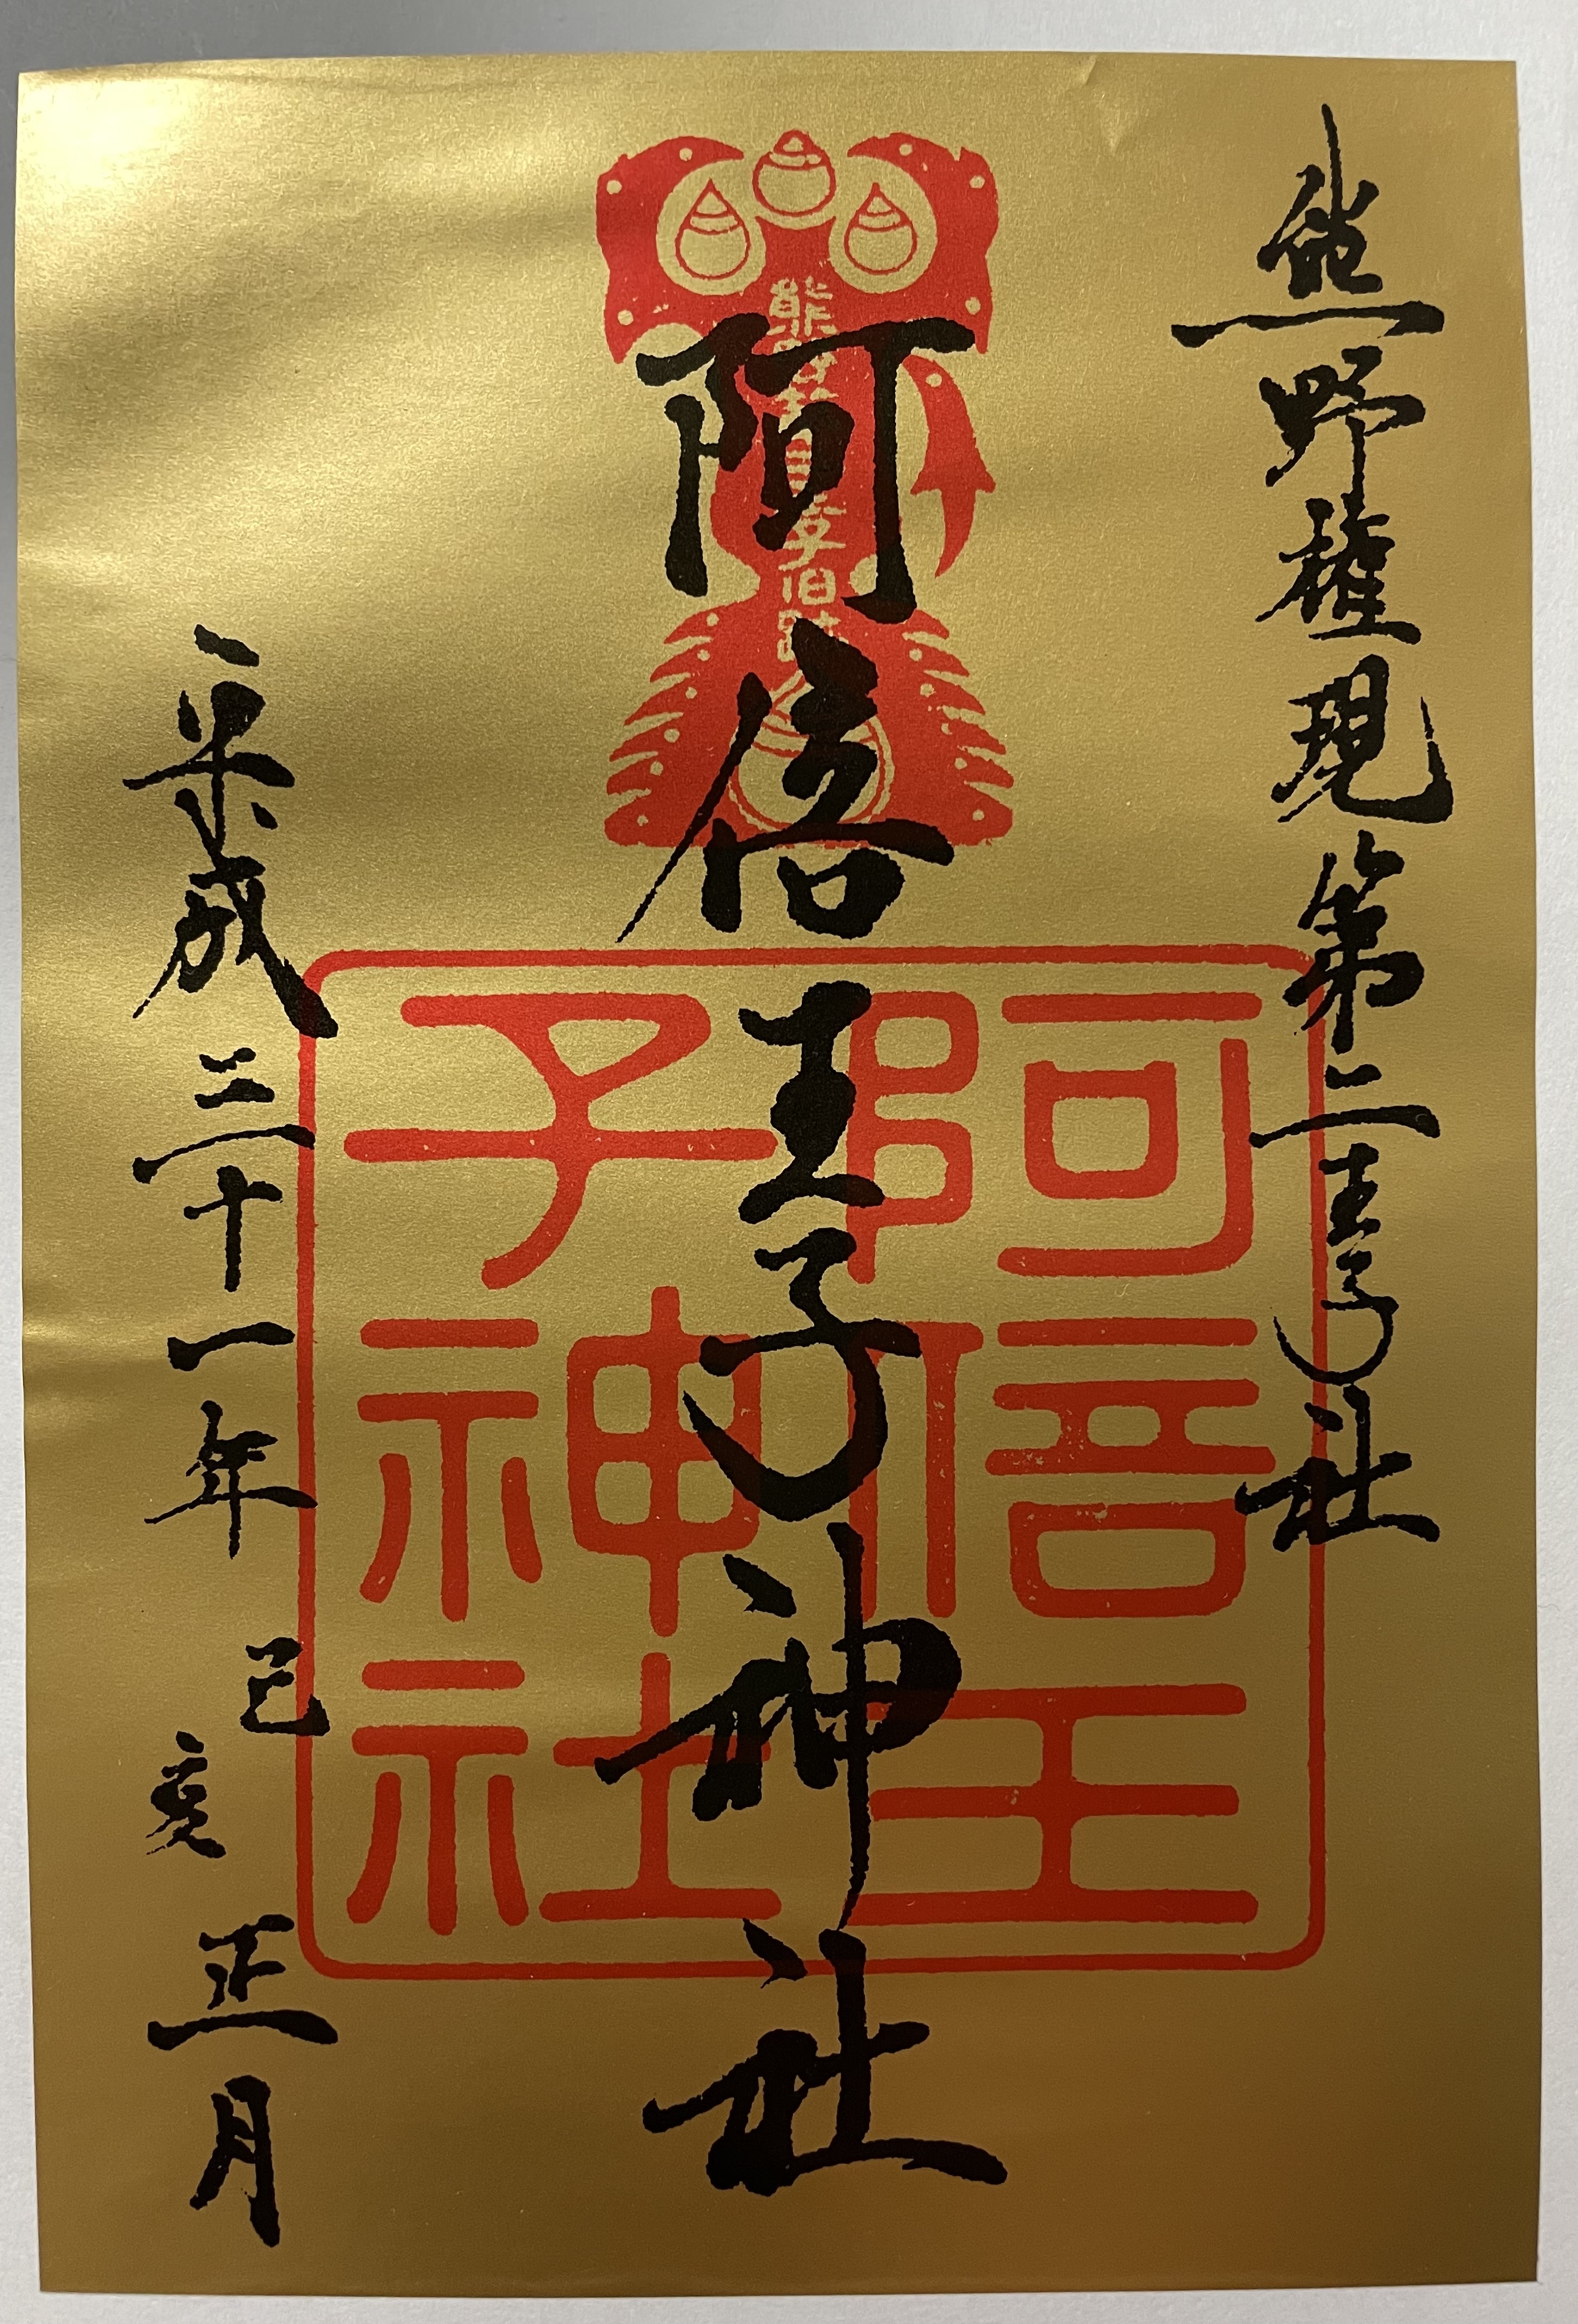 熊野権現第二王子社
阿倍王子神社
平成三十一年
己亥
正月
阿倍王
子神社